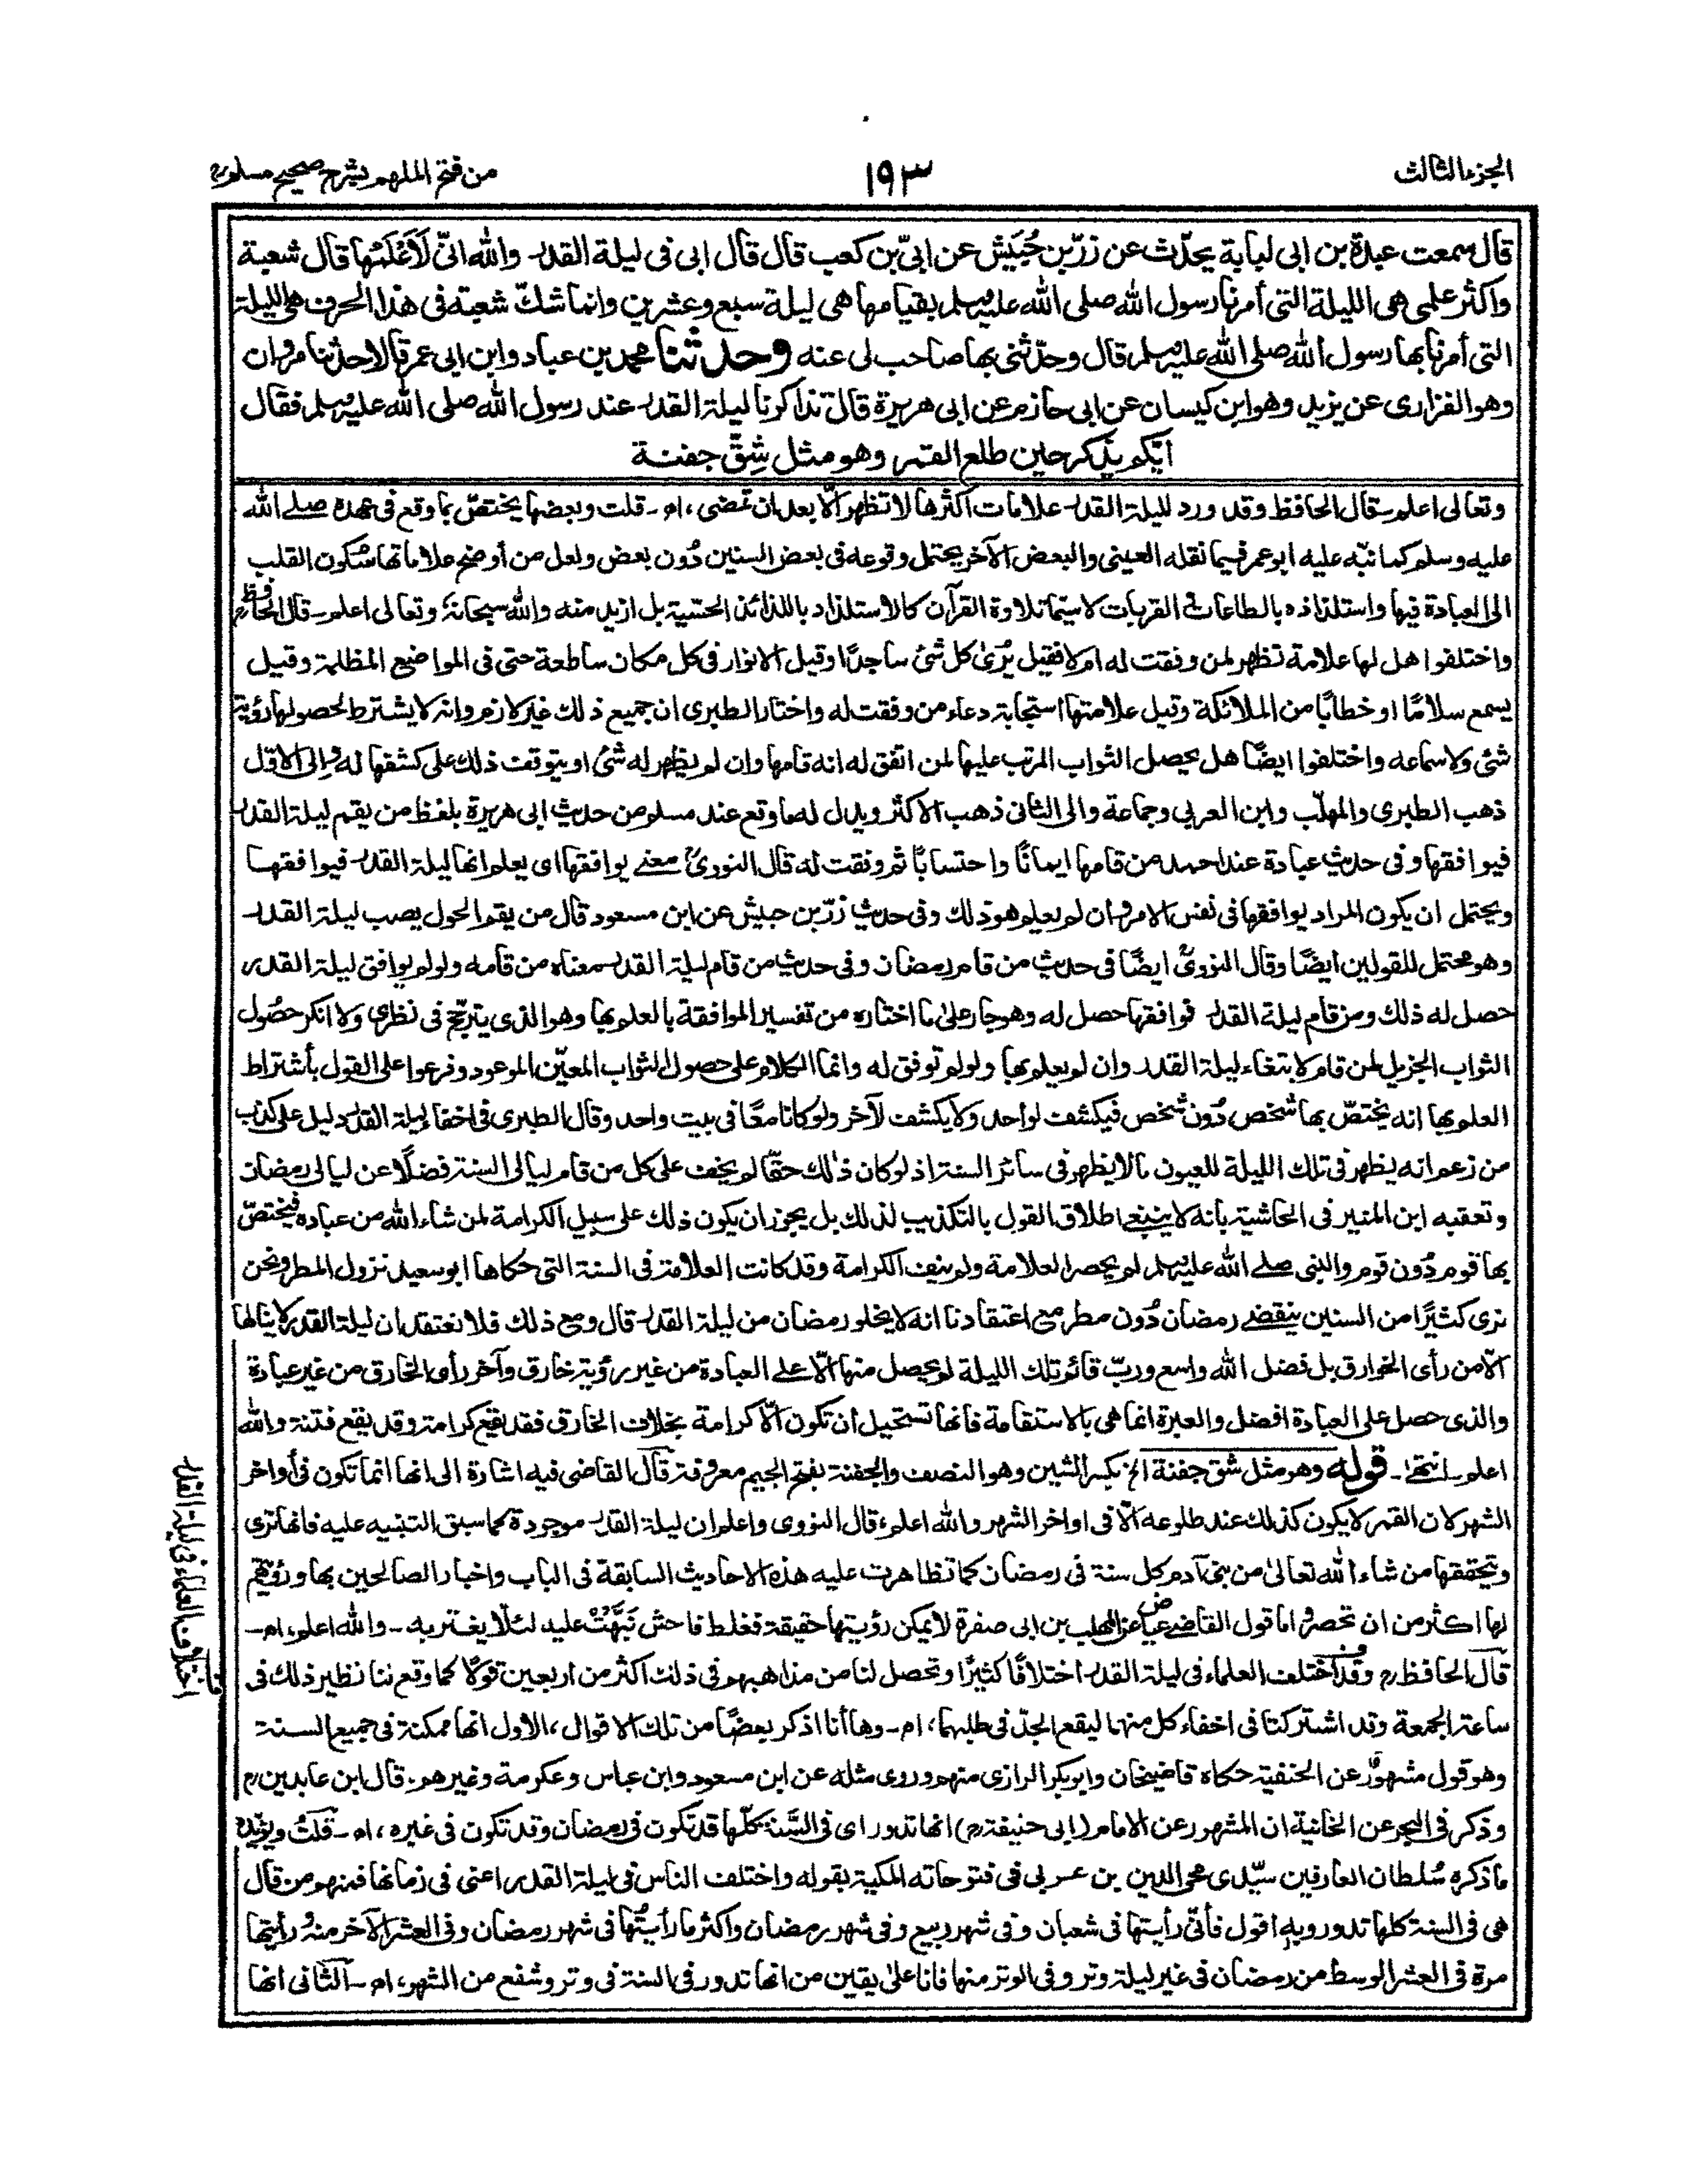 الجزء الثالث
١٩٣
من فتح الملهم بشرح صحيح مسلم
قال سمعت عبدة بن ابى لبابة يحدّث عن زرّ بن حُبَيْش عن ابىّ بن كعب قال قال ابى فى ليلة القدر والله انّى لَأَعْلَمُها قال شعبة
واكثر علمى هى الليلة التى أمرنا رسول الله صلى الله عليه وسلم بقيامها هى ليلة سبع وعشرين وانما شكّ شعبة فى هذا الحرف هى الليلة
التى أمرنا بها رسول الله صلى الله عليه وسلم قال وحدّثنى بها صاحب لى عنه وحدثنا محمد بن عباد وابن ابى عمر قالا حدثنا مروان
وهو الفزارى عن يزيد وهو ابن كيسان عن ابى حازم عن ابى هريرة قال تذاكرنا ليلة القدر عند رسول الله صلى الله عليه وسلم فقال
ايّكم يذكر حين طلع القمر وهو مثل شِقّ جفنة
وتعالى اعلم۔ قال الحافظ وقد ورد لليلة القدر علامات اكثرها لا تظهر الّا بعد ان تمضى، اھ۔ قلت وبعضها يختصّ بما وقع فى عهده صلے الله
عليه وسلم كما نبّه عليه ابو عمر فيما نقله العينى والبعض الآخر يحتمل وقوعه فى بعض السنين دُون بعض ولعل من أوضح علاماتها سُكون القلب
الى العبادة فيها واستلذاذه بالطاعات والقربات لا سيّما تلاوة القرآن كالاستلذاذ باللذائذ الحسّية بل ازيد منه والله سبحانه وتعالى اعلم۔ قال الحافظ
واختلفوا هل لها علامة تظهر لمن وفقت له ام لا فقيل يُرىٰ كل شئ ساجدًا وقيل الانوار فى كل مكان ساطعة حتى فى المواضع المظلمة وقيل
يسمع سلامًا او خطابًا من الملائكة وقيل علامتها استجابة دعاء من وفقت له واختار الطبرى ان جميع ذلك غير لازم وانه لا يشترط لحصولها رؤية
شئ ولا سماعه واختلفوا ايضًا هل يحصل الثواب المرتب عليها لمن اتفق له انه قامها وان لم يظهر له شئ او يتوقف ذلك على كشفها له والى الاوّل
ذهب الطبرى والمهلّب وابن العربى وجماعة والى الثانى ذهب الاكثر ويدل له ما وقع عند مسلم من حديث ابى هريرة بلفظ من يقم ليلة القدر
فيوافقها وفى حديث عبادة عند احمد من قامها ايمانًا واحتسابًا ثم وفقت له قال النووىؒ معنے يوافقها اى يعلم انها ليلة القدر فيوافقها
ويحتمل ان يكون المراد يوافقها فى نفس الامر وان لم يعلم هو ذلك وفى حديث زرّ بن حبيش عن ابن مسعود قال من يقم الحول يصب ليلة القدر
وهو محتمل للقولين ايضًا وقال النووىؒ ايضًا فى حديث من قام رمضان وفى حديث من قام ليلة القدر معناه من قامه ولو لم يوافق ليلة القدر
حصل له ذلك ومن قام ليلة القدر فوافقها حصل له وهو جار علىٰ ما اختاره من تفسير الموافقة بالعلم بها وهو الذى يترجّح فى نظرى ولا انكر حصُول
الثواب الجزيل لمن قام لابتغاء ليلة القدر وان لم يعلم بها ولو لم توفق له وانما الكلام على حصول الثواب المعيّن الموعود وفرعوا على القول بأشتراط
العلم بها انه يختصّ بها شخص دُون شخص فيكشف لواحد ولا يكشف لآخر ولو كانا معًا فى بيت واحد وقال الطبرى فى اخفاء ليلة القدر دليل على كذب
من زعم انه يظهر فى تلك الليلة للعيون ما لا يظهر فى سائر السنة اذ لو كان ذٰلك حقًّا لم يخف على كل من قام ليالى السنة فضلًا عن ليالى رمضان
وتعقبه ابن المنير فى الحاشية بانه لا ينبغے اطلاق القول بالتكذيب لذلك بل يجوز ان يكون ذلك على سبيل الكرامة لمن شاء الله من عباده فيختصّ
بها قوم دُون قوم والنبى صلے الله عليه وسلم لم يحصر العلامة ولم ينف الكرامة وقد كانت العلامة فى السنة التى حكاها ابو سعيد نزول المطر ونحن
نرى كثيرًا من السنين ينقضے رمضان دُون مطر مع اعتقادنا انه لا يخلو رمضان من ليلة القدر قال ومع ذلك فلا نعتقد ان ليلة القدر لا ينالها
الّا من رأى الخوارق بل فضل الله واسع وربّ قائم تلك الليلة لم يحصل منها الّا على العبادة من غير رؤية خارق وآخر رأى الخارق من غير عبادة
والذى حصل على العبادة افضل والعبرة انما هى بالاستقامة فانها تستحيل ان تكون الّا كرامة بخلاف الخارق فقد يقع كرامة وقد يقع فتنة والله
اعلم انتهىٰ۔ قوله وهو مثل شق جفنة الخ بكسر الشين وهو النصف والجفنة بفتح الجيم معروفة قال القاضى فيه اشارة الى انها انما تكون فى أواخر
الشهر لان القمر لا يكون كذلك عند طلوعه الّا فى اواخر الشهر والله اعلم، قال النووى واعلم ان ليلة القدر موجودة كما سبق التنبيه عليه فانها ترى
ويتحققها من شاء الله تعالىٰ من بنى آدم كل سنة فى رمضان كما تظاهرت عليه هذه الاحاديث السابقة فى الباب واخبار الصالحين بها ورؤيتهم
لها اكثر من ان تحصر واما قول القاضے عياض عن المهلب بن ابى صفرة لا يمكن رؤيتها حقيقة فغلط فاحش نَبَّهْتُ عليه لئلّا يغتر به۔ والله اعلم، اھ۔
قال الحافظ وقد اختلف العلماء فى ليلة القدر اختلافًا كثيرًا وتحصل لنا من مذاهبهم فى ذلك اكثر من اربعين قولًا كما وقع لنا نظير ذلك فى
ساعة الجمعة وقد اشتركتا فى اخفاء كل منهما ليقع الجدّ فى طلبهما، اھ۔ وها أنا اذكر بعضًا من تلك الاقوال، الأول انها ممكنة فى جميع السنة
وهو قول مشهور عن الحنفية حكاه قاضيخان وابوبكر الرازى منهم وروى مثله عن ابن مسعود وابن عباس وعكرمة وغيرهم۔ قال ابن عابدين
وذكر فى البحر عن الخانية ان المشهور عن الامام (ابى حنيفة) انها تدور اى فى السَّنة كلّها قد تكون فى رمضان وقد تكون فى غيره، اھ۔ قلتُ ويؤيّده
ما ذكره سُلطان العارفين سيّدى محى الدين بن عربى فى فتوحاته المكية بقوله واختلف الناس فى ليلة القدر اعنى فى زمانها فمنهم من قال
هى فى السنة كلها تدور وبه اقول فأنّى رأيتها فى شعبان وفى شهر ربيع وفى شهر رمضان واكثر ما رأيتُها فى شهر رمضان وفى العشر الآخر منه ورأيتها
مرة فى العشر الوسط من رمضان فى غير ليلة وتر وفى الوتر منها فانا علىٰ يقين من انها تدور فى السنة فى وتر وشفع من الشهر، اھ۔ الثانى انها
اختلاف العلماء فى ليلة القدر